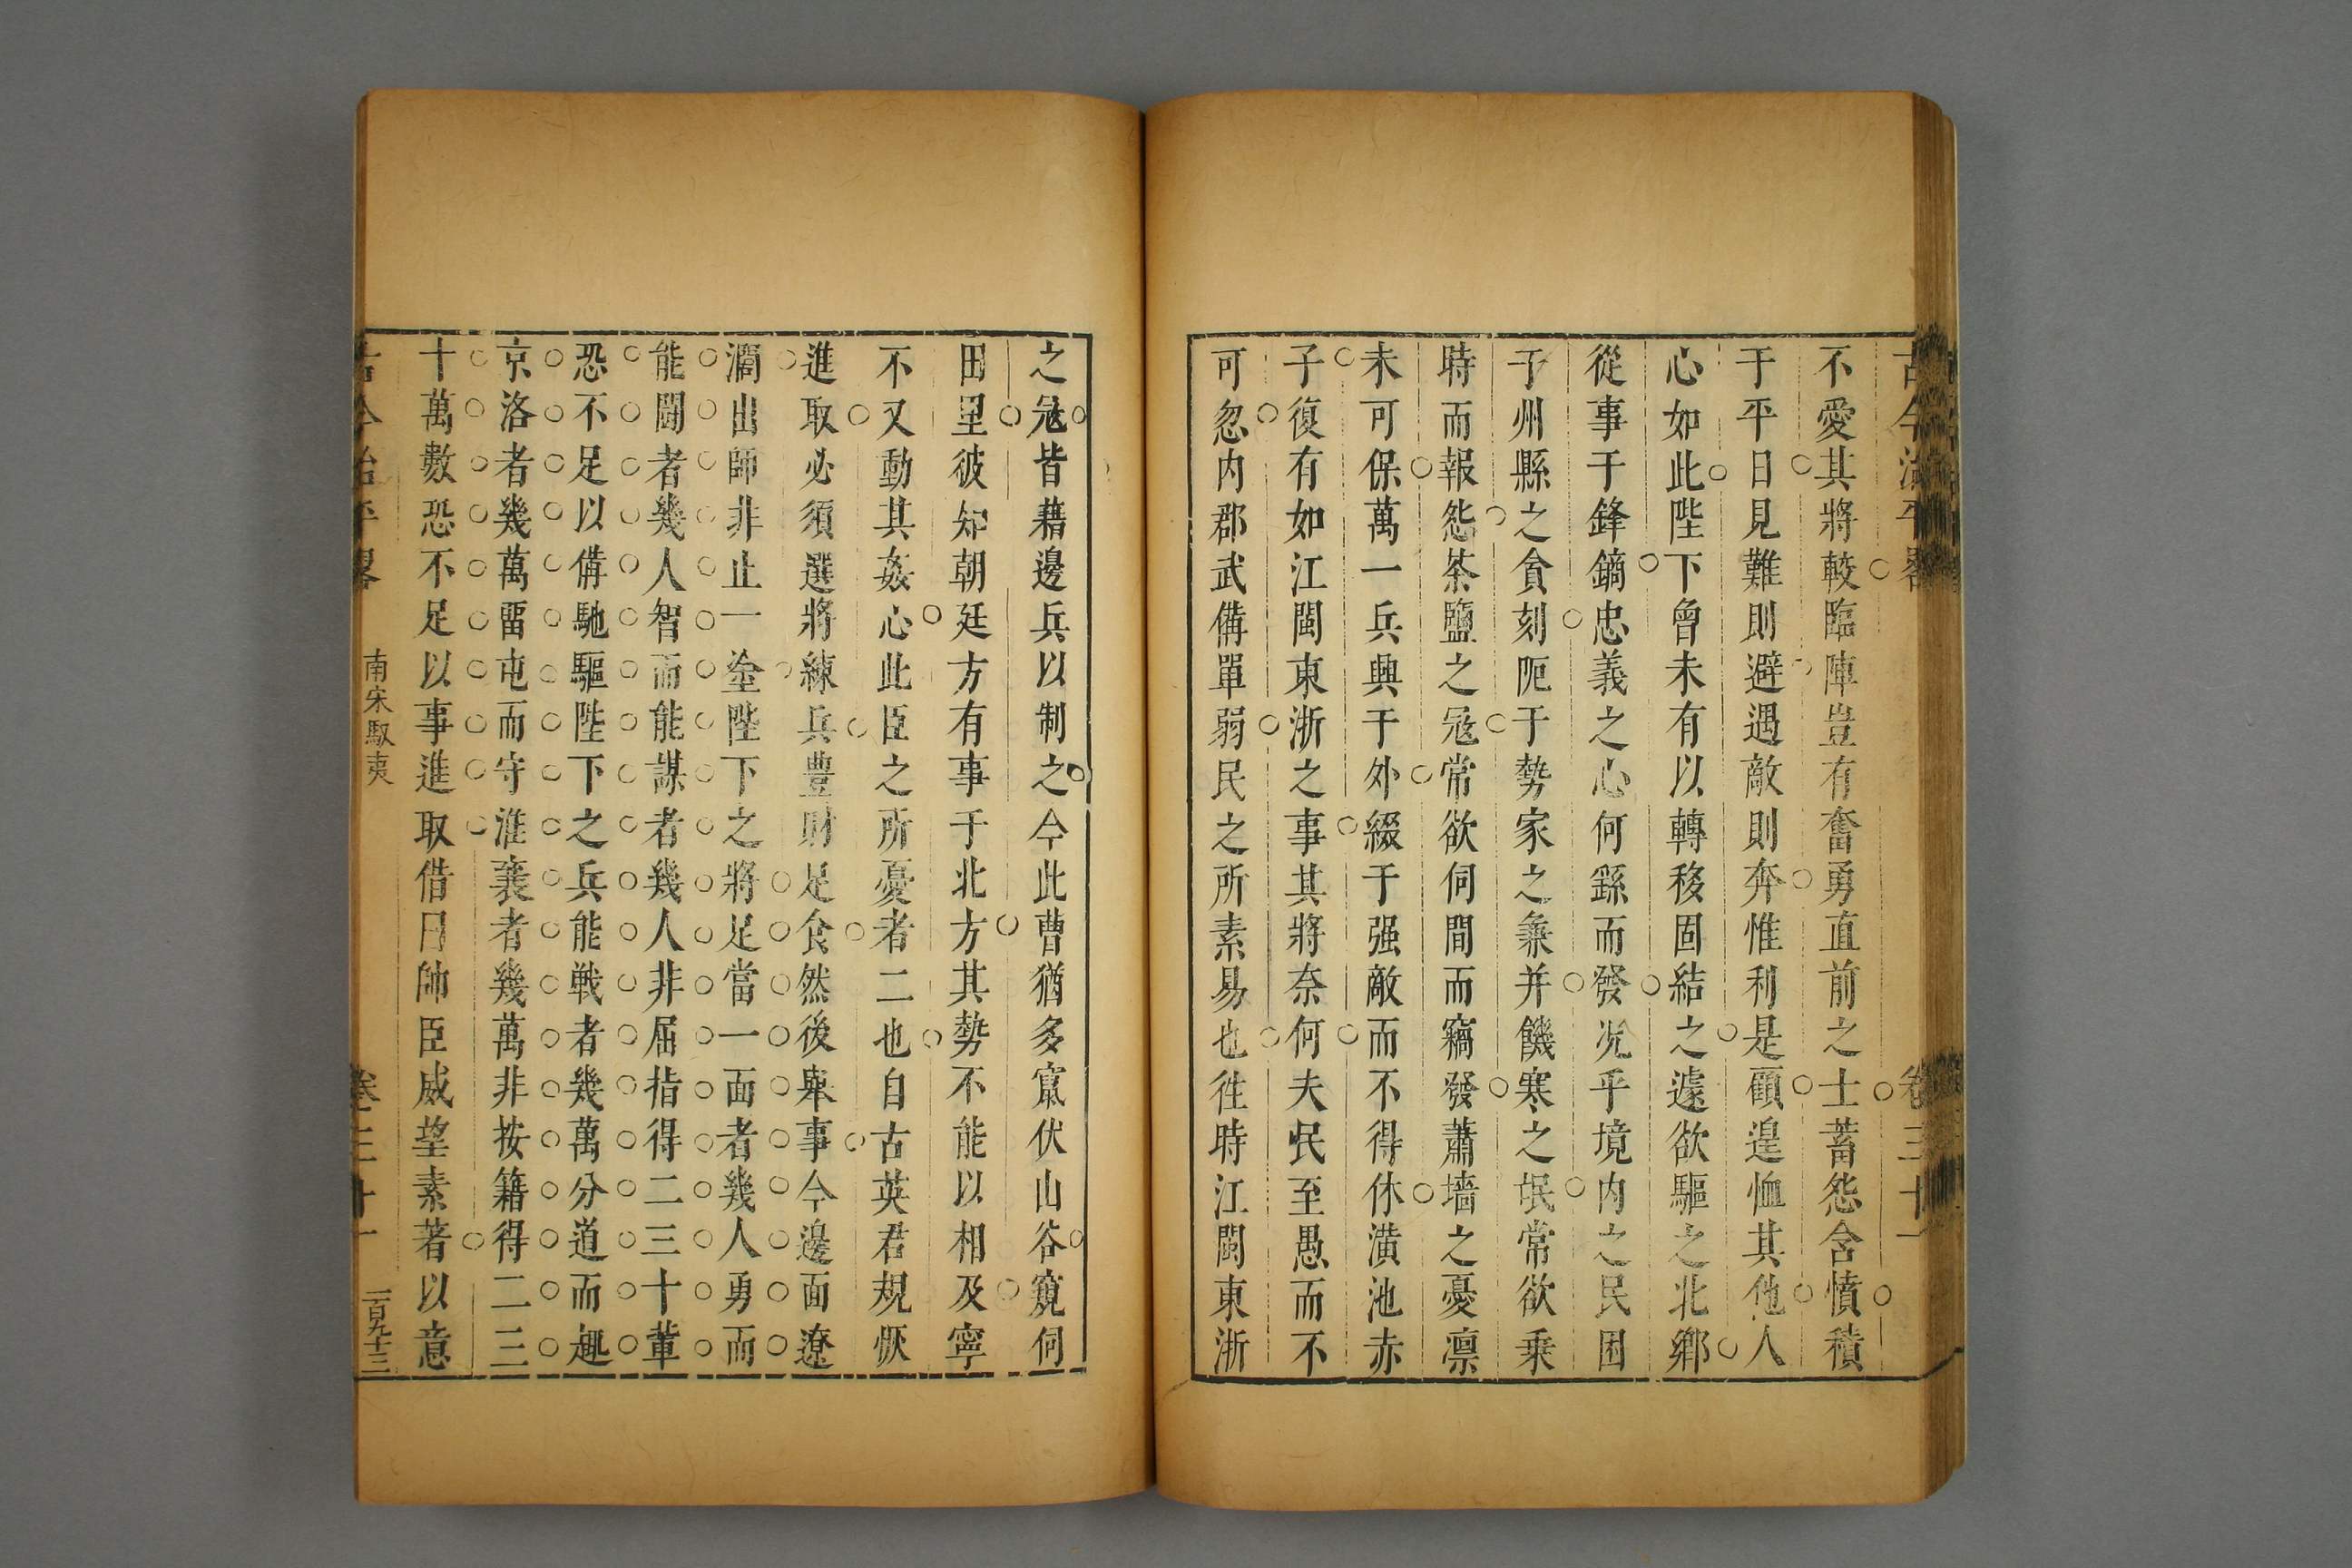 古今治平畧 卷三十一
不愛其將較臨陣豈有奮勇直前之士蓄怨含憤積
于平日見難則避遇敵則奔惟利是顧遑恤其他人
心如此陛下曾未有以轉移固結之遽欲驅之北鄉
從事于鋒鏑忠義之心何繇而發况乎境内之民困
于州縣之貪刻阨于勢家之兼并饑寒之氓常欲乗
時而報怨茶鹽之冦常欲伺間而竊發蕭墻之憂凛
未可保萬一兵興于外綴于强敵而不得休潢池赤
子復有如江閩東浙之事其將奈何夫民至愚而不
可忽内郡武備單弱民之所素易也徃時江閩東浙
之冦皆藉邊兵以制之今此曹猶多竄伏山谷窺伺
田里彼知朝廷方有事于北方其勢不能以相及寧
不又動其姦心此臣之所憂者二也自古英君規恢
進取必須選將練兵豊財足食然後舉事今邊面遼
濶出師非止一塗陛下之將足當一面者幾人勇而
能鬪者幾人智而能謀者幾人非屈指得二三十軰
恐不足以備馳驅陛下之兵能戰者幾萬分道而趣
京洛者幾萬畱屯而守淮襄者幾萬非按籍得二三
十萬數恐不足以事進取借曰帥臣威望素著以意
古今治平畧 南宋馭夷 卷三十一 一百九十三